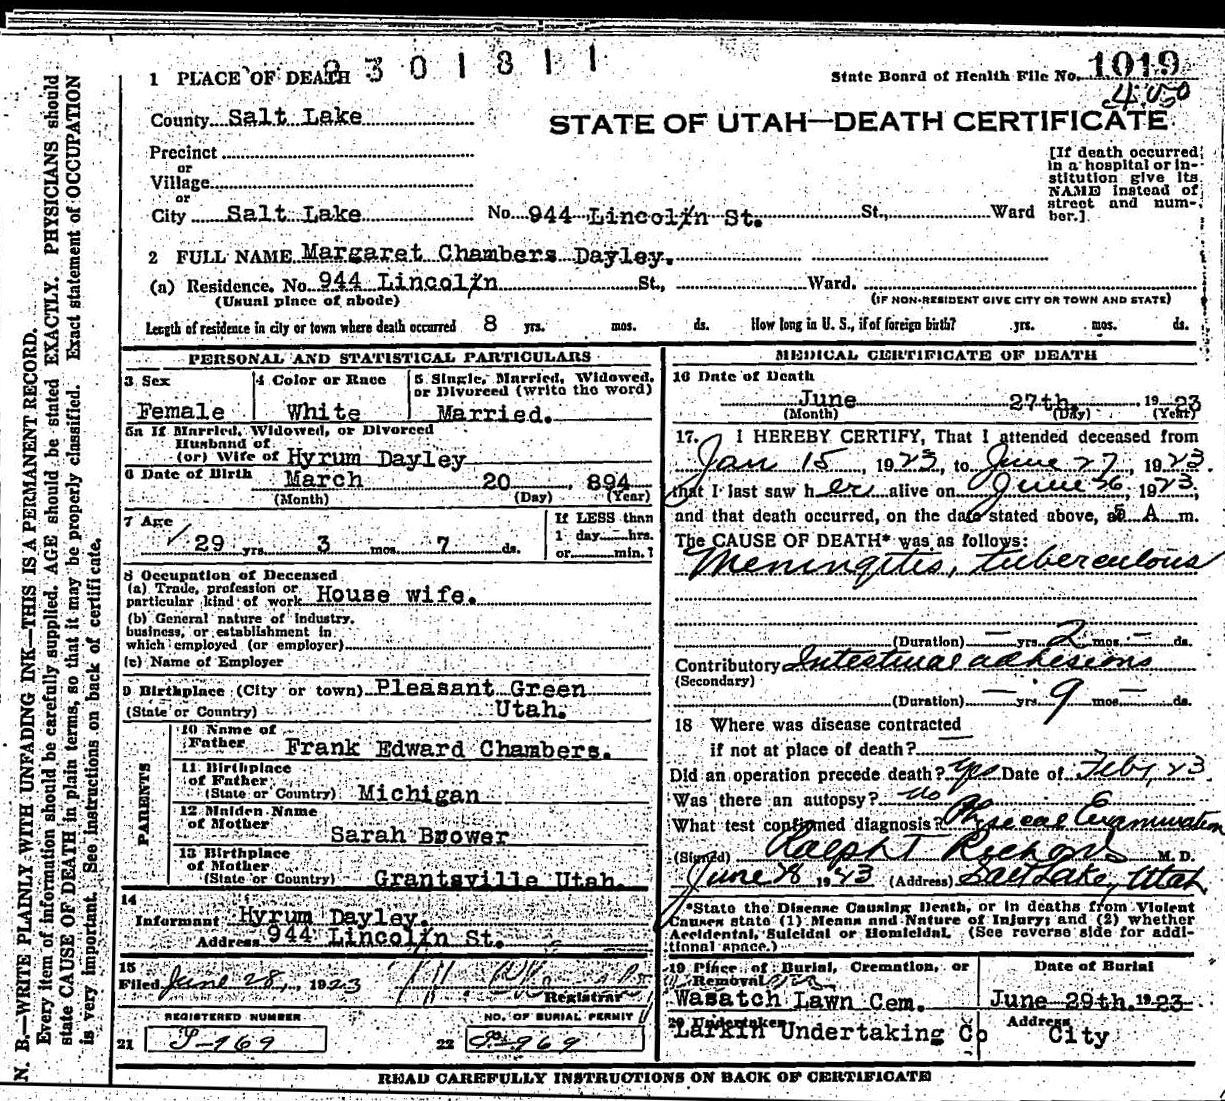 2301811
1 PLACE OF DEATH
State Board of Health File No. 1019
County Salt Lake
STATE OF UTAH—DEATH CERTIFICATE
Precinct
or
Village
or
City Salt Lake No. 944 Lincolin St. St., Ward
[If death occurred
in a hospital or in-
stitution give its
NAME instead of
street and num-
ber.]
2 FULL NAME Margaret Chambers Dayley.
(a) Residence. No. 944 Lincolin St., Ward.
(Usual place of abode) (IF NON-RESIDENT GIVE CITY OR TOWN AND STATE)
Length of residence in city or town where death occurred 8 yrs. mos. ds. How long in U. S., if of foreign birth? yrs. mos. ds.
PERSONAL AND STATISTICAL PARTICULARS
3 Sex
Female
4 Color or Race
White
5 Single, Married, Widowed,
or Divorced (write the word)
Married.
5a If Married, Widowed, or Divorced
Husband of
(or) Wife of Hyrum Dayley
6 Date of Birth March 20 , 894
(Month) (Day) (Year)
7 Age
29 yrs. 3 mos. 7 ds.
If LESS than
1 day hrs.
or min.?
8 Occupation of Deceased
(a) Trade, profession or
particular kind of work House wife.
(b) General nature of industry,
business, or establishment in
which employed (or employer)
(c) Name of Employer
9 Birthplace (City or town) Pleasant Green
(State or Country) Utah.
PARENTS
10 Name of
Father Frank Edward Chambers.
11 Birthplace
of Father
(State or Country) Michigan
12 Maiden Name
of Mother
Sarah Brower
13 Birthplace
of Mother
(State or Country) Grantsville Utah.
14
Informant Hyrum Dayley.
Address 944 Lincolin St.
15
Filed June 28, 1923
Registrar
REGISTERED NUMBER
21 S-969
NO. OF BURIAL PERMIT
22 969
MEDICAL CERTIFICATE OF DEATH
16 Date of Death
June 27th, 1923
(Month) (Day) (Year)
17. I HEREBY CERTIFY, That I attended deceased from
Jan 15, 1923, to June 27, 1923.
that I last saw her alive on June 26, 1923,
and that death occurred, on the date stated above, at 5 A m.
The CAUSE OF DEATH* was as follows:
Meningitis, tuberculous
(Duration) — yrs. 2 mos. — ds.
Contributory Intestinal adhesions
(Secondary)
(Duration) — yrs. 9 mos. — ds.
18 Where was disease contracted
if not at place of death? —
Did an operation precede death? Yes Date of Feby, 23
Was there an autopsy? no
What test confirmed diagnosis? Physical Examination
(Signed) Ralph T Richards M. D.
June 28 1923 (Address) Salt Lake, Utah
*State the Disease Causing Death, or in deaths from Violent
Causes state (1) Means and Nature of Injury; and (2) whether
Accidental, Suicidal or Homicidal. (See reverse side for addi-
tional space.)
19 Place of Burial, Cremation, or
Removal
Wasatch Lawn Cem.
Date of Burial
June 29th. 1923
20 Undertaker
Larkin Undertaking Co
Address
City
READ CAREFULLY INSTRUCTIONS ON BACK OF CERTIFICATE
N. B.—WRITE PLAINLY WITH UNFADING INK—THIS IS A PERMANENT RECORD.
Every item of information should be carefully supplied. AGE should be stated EXACTLY. PHYSICIANS should
state CAUSE OF DEATH in plain terms, so that it may be properly classified. Exact statement of OCCUPATION
is very important. See instructions on back of certificate.